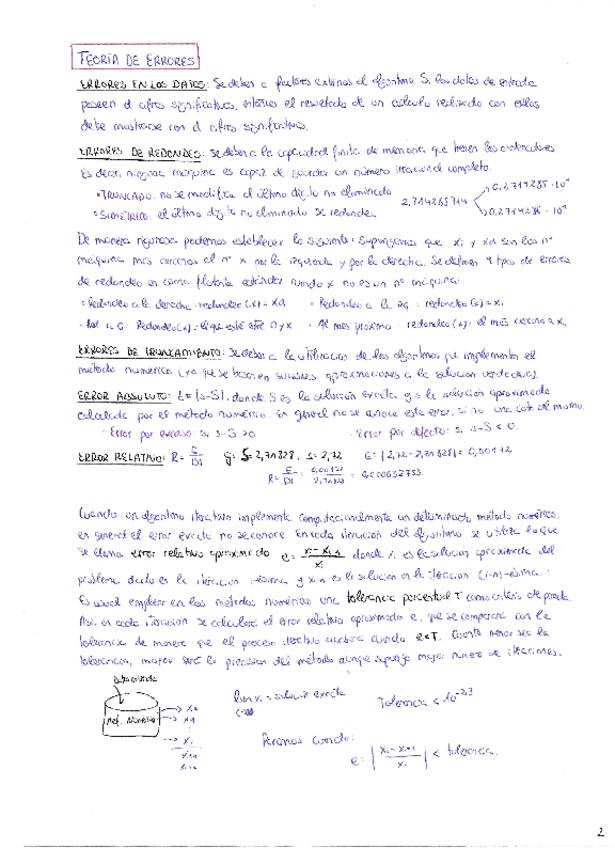 TEORÍA DE ERRORES
ERRORES EN LOS DATOS: Se deben a factores externos al algoritmo. Si los datos de entrada
poseen d cifras significativas, entonces el resultado de un cálculo realizado con ellas
debe mostrarse con d cifras significativas.
ERRORES DE REDONDEO: Se deben a la capacidad finita de memoria que tienen los ordenadores
Es decir, ninguna máquina es capaz de guardar un número irracional completo.
• TRUNCADO: no se modifica el último dígito no eliminado
2,714285714
0,2714285 · 10¹
• SIMÉTRICO: el último dígito no eliminado se redondea
0,2714286 · 10¹
De manera rigurosa podemos establecer lo siguiente: Supongamos que xi y xd son los nº
máquina más cercanos al nº x por la izquierda y por la derecha. Se definen 4 tipos de errores
de redondeo en coma flotante estándar cuando x no es un nº máquina:
• Redondeo a la derecha: redondeo (x) = xd • Redondeo a la izq: redondeo (x) = xi
Redondeo(x) = el que esté entre 0 y x • Al más próximo: redondeo (x): el más cercano a x.
ERRORES DE TRUNCAMIENTO: Se deben a la utilización de los algoritmos que implementa el
método numérico (ya que se basan en sucesivas aproximaciones a la solución verdadera).
ERROR ABSOLUTO: E = |s-S|, donde S es la solución exacta y s la solución aproximada
calculada por el método numérico. En general no se conoce este error, si no una cota del mismo.
- Error por exceso: si s-S > 0 - Error por defecto: si s-S < 0.
ERROR RELATIVO: R = E/|S| S = 2,71828, s = 2,72 E = |2,72 - 2,71828| = 0,00172
R = E/|S| = 0,00172/2,71828 = 0,000632753
Cuando un algoritmo iterativo implementa computacionalmente un determinado método numérico,
en general el error exacto no se conoce. En cada iteración del algoritmo se utiliza lo que
se llama error relativo aproximado donde xi es la solución aproximada del
problema dado en la iteración i-ésima y xi-1 es la solución en la iteración (i-1)-ésima.
Es usual emplear en los métodos numéricos una tolerancia porcentual T como criterio de parada.
Así, en cada iteración se calculará el error relativo aproximado e, que se comparará con la
tolerancia de manera que el proceso iterativo acabará cuando e<T. Cuanto menor sea la
tolerancia, mayor será la precisión del método aunque suponga mayor número de iteraciones.
Met. Numérico
lim xi = solución exacta
Tolerancia < 10⁻²³
Paramos cuando:
< tolerancia.
2